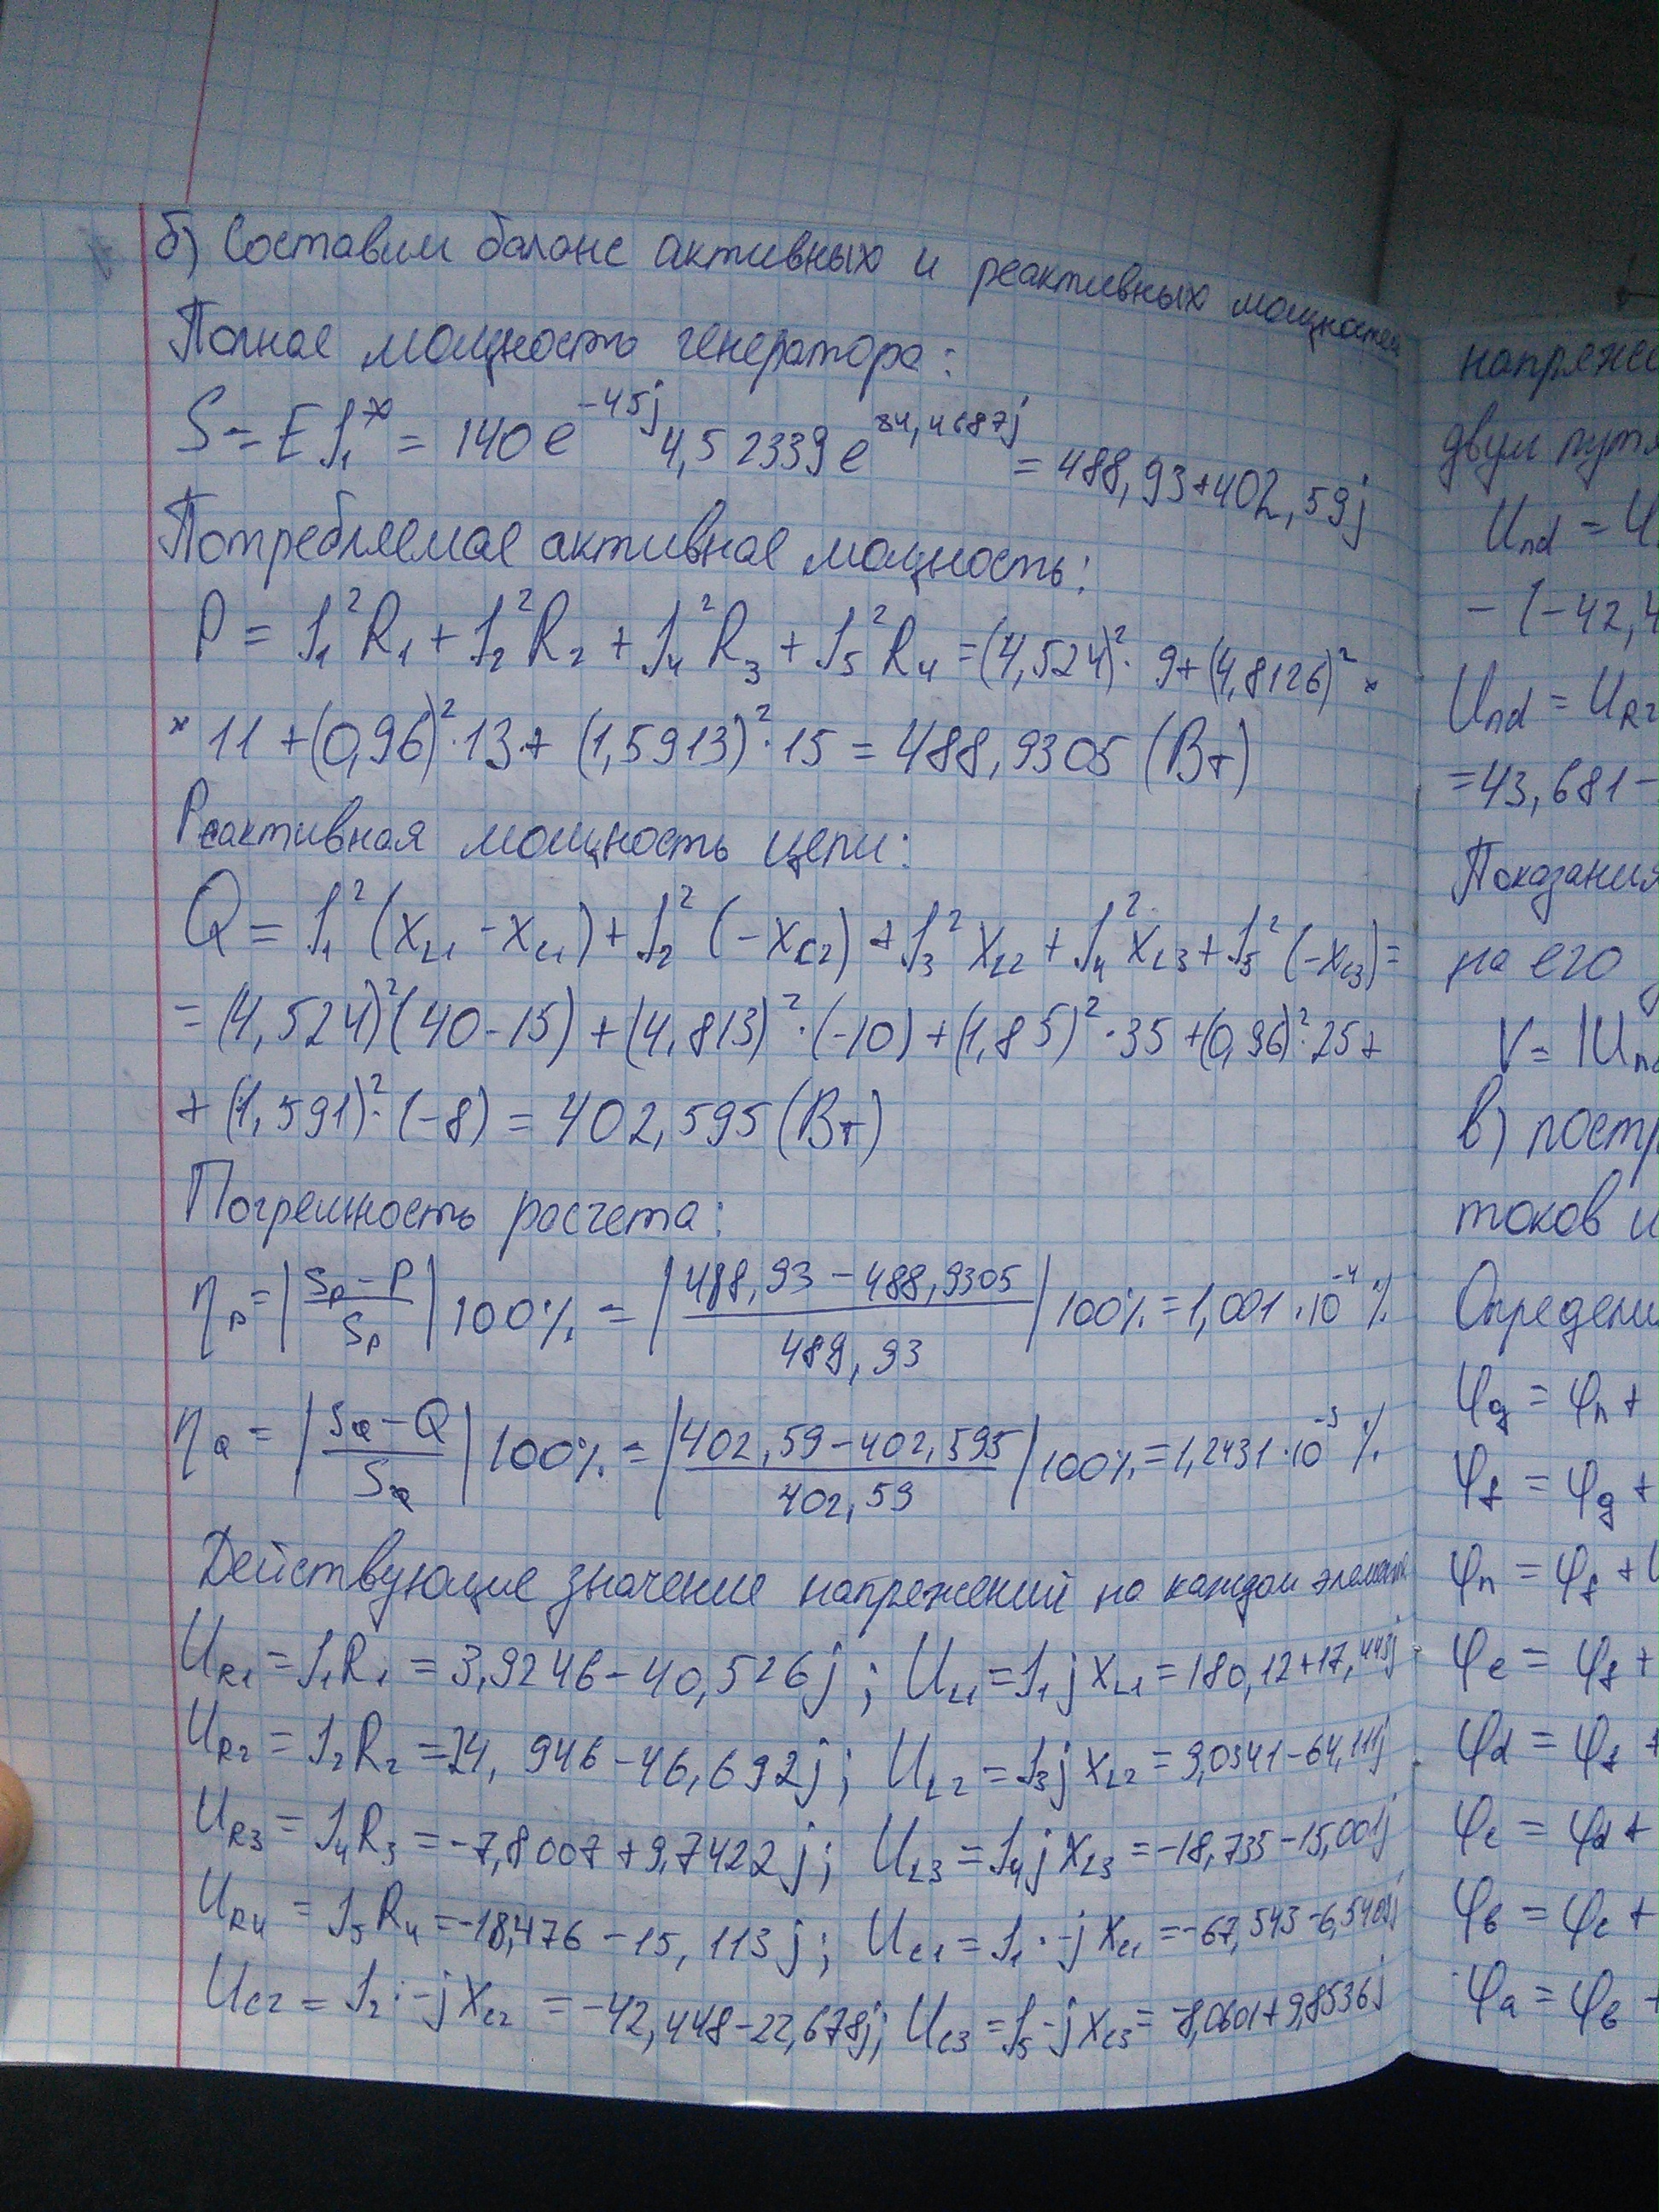 б) Составим баланс активных и реактивных мощностей
Полная мощность генератора:
S = E I₁* = 140 e^(-45j) 4,52339 e^(84,4687j) = 488,93+402,59j
Потребляемая активная мощность:
P = I₁²R₁ + I₂²R₂ + I₄²R₃ + I₅²R₄ = (4,524)²· 9+(4,8126)² ×
× 11 + (0,96)²·13 + (1,5913)²·15 = 488,9305 (Вт)
Реактивная мощность цепи:
Q = I₁²(X_L1 - X_C1) + I₂²(-X_C2) + I₃²X_L2 + I₄²X_L3 + I₅²(-X_C3) =
= (4,524)²(40-15) + (4,813)²·(-10) + (1,85)²·35 + (0,96)²·25+
+ (1,591)²·(-8) = 402,595 (Вт)
Погрешность расчета:
η_P = |(S_P - P)/S_P| 100% = |(488,93 - 488,9305)/489,93| 100% = 1,001·10⁻⁴ %
η_Q = |(S_Q - Q)/S_Q| 100% = |(402,59 - 402,595)/402,59| 100% = 1,2431·10⁻³ %
Действующие значение напряжений на каждом элементе
U_R1 = I₁R₁ = 3,9246 - 40,526j; U_L1 = I₁jX_L1 = 180,12+17,443j
U_R2 = I₂R₂ = 24,946 - 46,692j; U_L2 = I₃jX_L2 = 9,0341-64,111j
U_R3 = I₄R₃ = -7,8007 + 9,7422j; U_L3 = I₄jX_L3 = -18,735-15,001j
U_R4 = I₅R₄ = -18,476 - 15,113j; U_C1 = I₁·-jX_C1 = -67,543-6,5409j
U_C2 = I₂·-jX_C2 = -42,448-22,678j; U_C3 = I₅-jX_C3 = -8,0601+9,8536j
двум
U_nd =
- (-42,4
U_nd = U_R2
= 43,681 -
Показания
на его
V = |U
в)
токов и
φ_g = φ_n +
φ_f = φ_g +
φ_n = φ_f +
φ_e = φ_f +
φ_d = φ_f +
φ_c = φ_d +
φ_b = φ_c +
φ_a = φ_b +